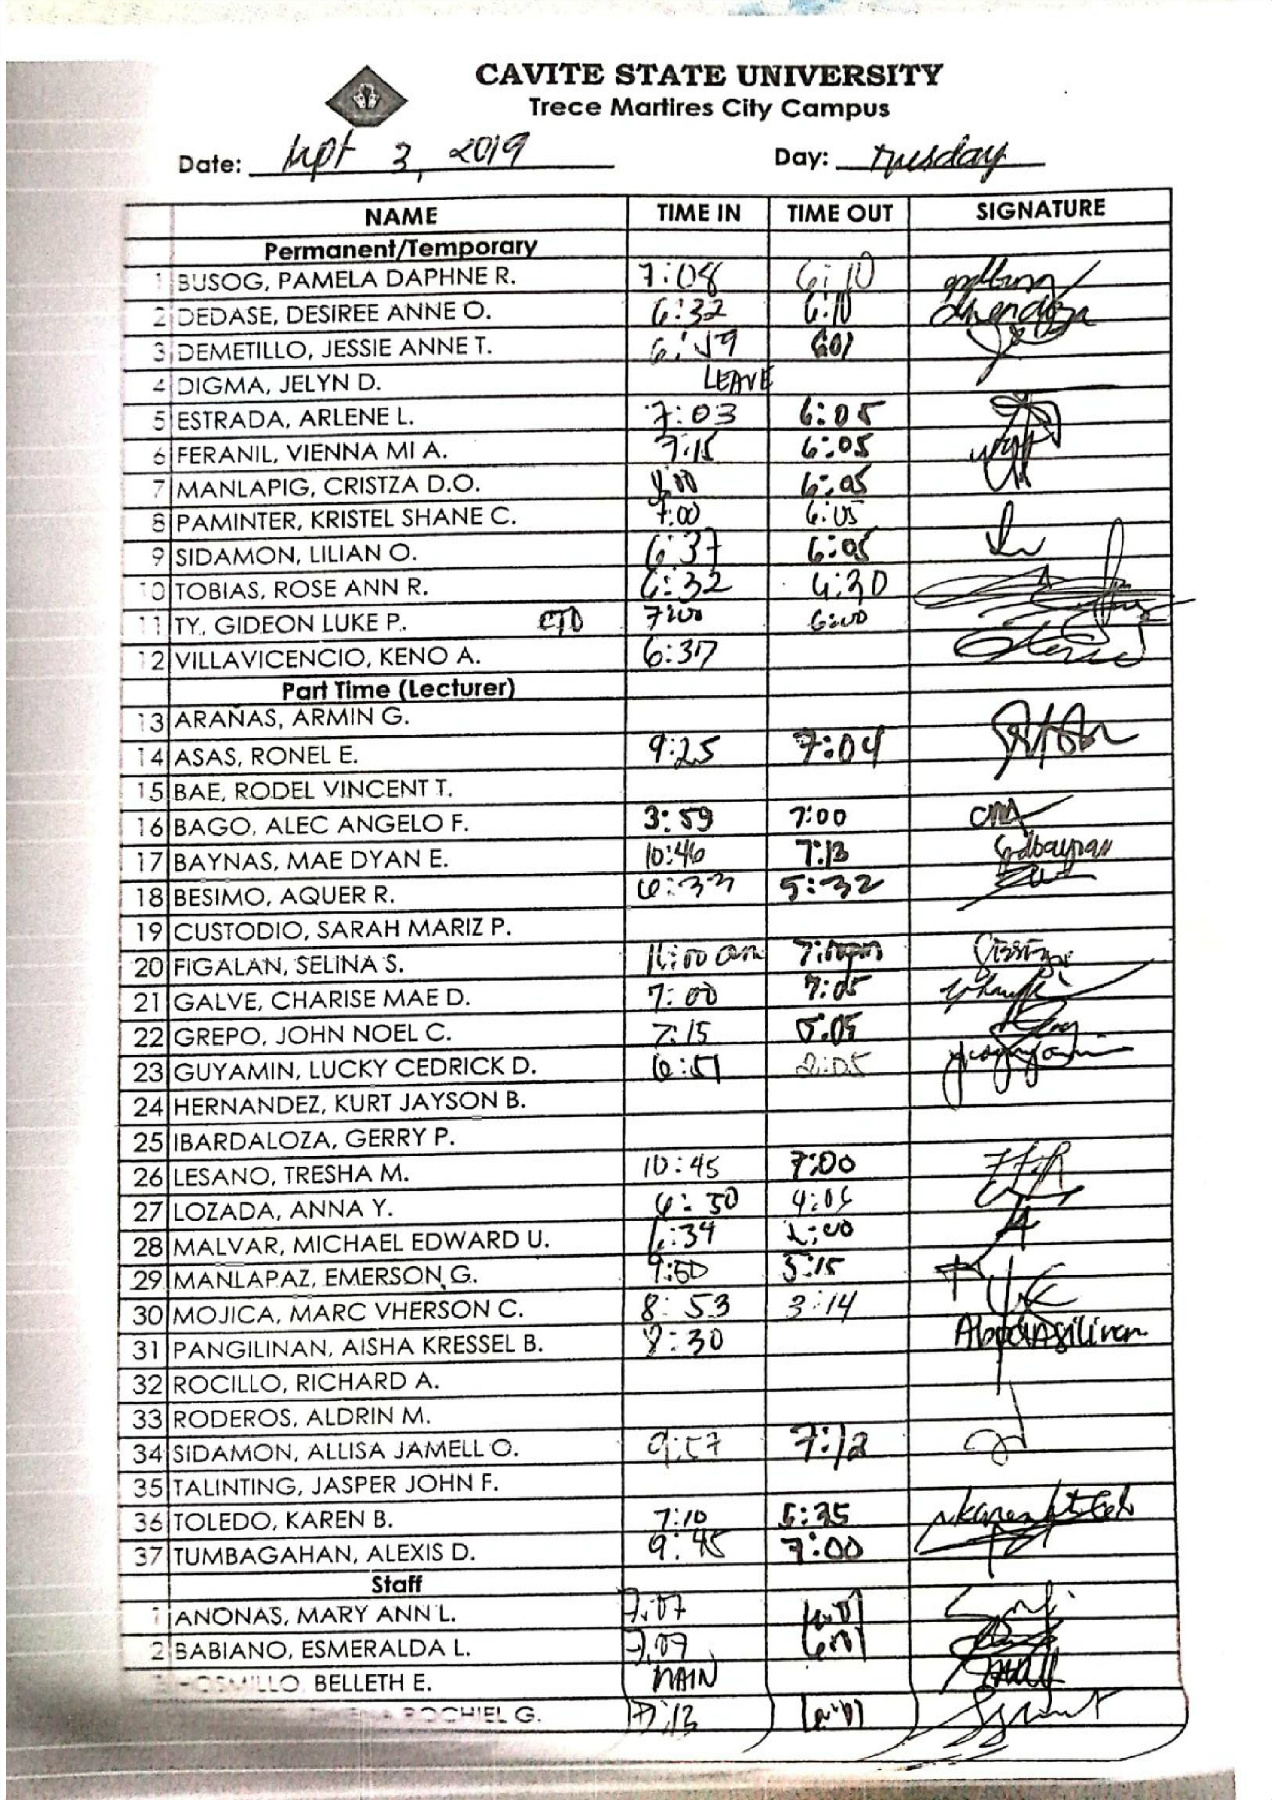 CAVITE STATE UNIVERSITY
Trece Martires City Campus
Date: Sept 3, 2019 Day: Tuesday
NAME TIME IN TIME OUT SIGNATURE
Permanent/Temporary
1 BUSOG, PAMELA DAPHNE R. 7:08 6:10
2 DEDASE, DESIREE ANNE O. 6:32 6:10
3 DEMETILLO, JESSIE ANNE T. 6:59 601
4 DIGMA, JELYN D. LEAVE
5 ESTRADA, ARLENE L. 7:03 6:05
6 FERANIL, VIENNA MI A. 7:15 6:05
7 MANLAPIG, CRISTZA D.O. 6:05
8 PAMINTER, KRISTEL SHANE C. 7:00 6:05
9 SIDAMON, LILIAN O. 6:37 6:05
10 TOBIAS, ROSE ANN R. 6:32 4:30
11 TY, GIDEON LUKE P. CTO 7:00 6:00
12 VILLAVICENCIO, KENO A. 6:37
Part Time (Lecturer)
13 ARAÑAS, ARMIN G.
14 ASAS, RONEL E. 9:25 7:04
15 BAE, RODEL VINCENT T.
16 BAGO, ALEC ANGELO F. 3:59 7:00
17 BAYNAS, MAE DYAN E. 10:46 7:13
18 BESIMO, AQUER R. 6:33 5:32
19 CUSTODIO, SARAH MARIZ P.
20 FIGALAN, SELINA S. 11:00 am 7:00pm
21 GALVE, CHARISE MAE D. 7:00 7:05
22 GREPO, JOHN NOEL C. 7:15 5:05
23 GUYAMIN, LUCKY CEDRICK D. 6:51 2:05
24 HERNANDEZ, KURT JAYSON B.
25 IBARDALOZA, GERRY P.
26 LESANO, TRESHA M. 10:45 7:00
27 LOZADA, ANNA Y. 6:30 4:05
28 MALVAR, MICHAEL EDWARD U. 6:34
29 MANLAPAZ, EMERSON G. 5:15
30 MOJICA, MARC VHERSON C. 8:53 3:14
31 PANGILINAN, AISHA KRESSEL B. 8:30
32 ROCILLO, RICHARD A.
33 RODEROS, ALDRIN M.
34 SIDAMON, ALLISA JAMELL O. 9:57 7:12
35 TALINTING, JASPER JOHN F.
36 TOLEDO, KAREN B. 7:10 5:35
37 TUMBAGAHAN, ALEXIS D. 9:45 7:00
Staff
1 ANONAS, MARY ANN L. 7:07 6:01
2 BABIANO, ESMERALDA L. 7:09 6:01
3 HOSMILLO, BELLETH E. MAIN
ROCHIEL G. 7:13 6:01